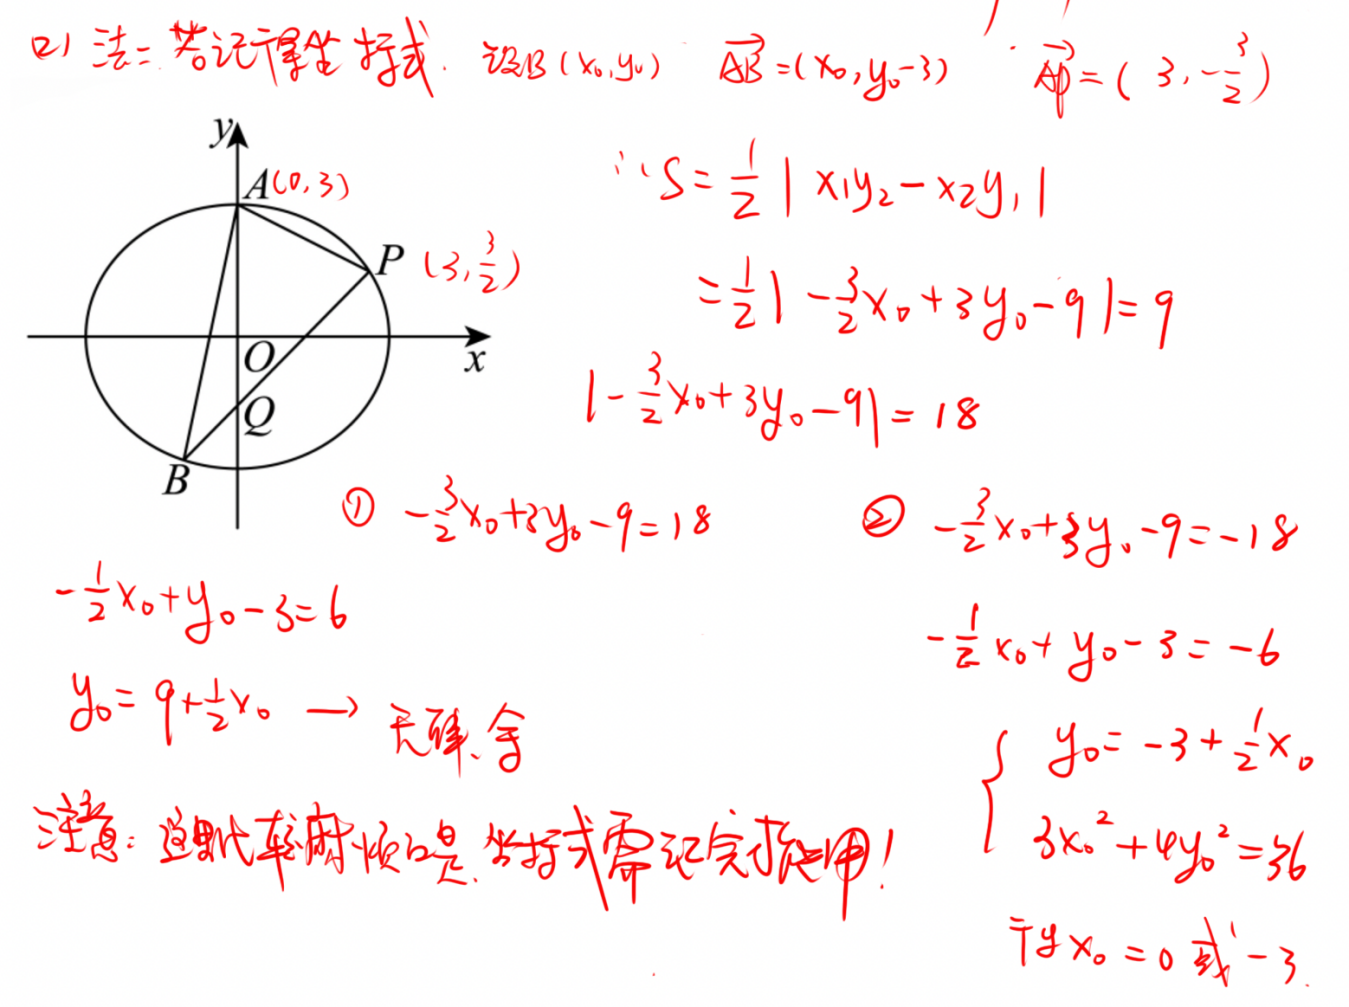 (2) 法二 若记得坐标式. 设B(x₀,y₀) $\overrightarrow{AB}$=(x₀,y₀-3) $\overrightarrow{AP}$=(3,-$\frac{3}{2}$)
y
A(0,3)
P (3,$\frac{3}{2}$)
O
x
Q
B
∴S=$\frac{1}{2}$|x₁y₂-x₂y₁|
=$\frac{1}{2}$|-$\frac{3}{2}$x₀+3y₀-9|=9
|-$\frac{3}{2}$x₀+3y₀-9|=18
① -$\frac{3}{2}$x₀+3y₀-9=18
-$\frac{1}{2}$x₀+y₀-3=6
y₀=9+$\frac{1}{2}$x₀ → 无解、舍
② -$\frac{3}{2}$x₀+3y₀-9=-18
-$\frac{1}{2}$x₀+y₀-3=-6
{ y₀=-3+$\frac{1}{2}$x₀
3x₀²+4y₀²=36
得x₀=0或-3.
注意: 这 坐标式需记 用!